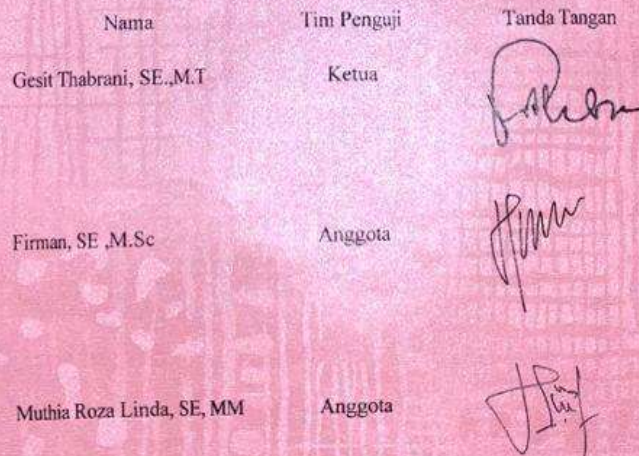 Nama Tim Penguji Tanda Tangan
Gesit Thabrani, SE.,M.T Ketua
Firman, SE ,M.Sc Anggota
Muthia Roza Linda, SE, MM Anggota